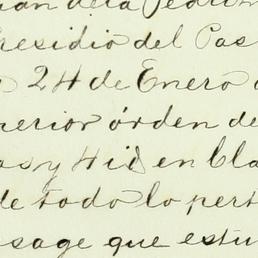 de la Pedru
residio del Pas
24 de Enero
perior órden de
as y Hid en Cla
de todo lo pert
sage que estu